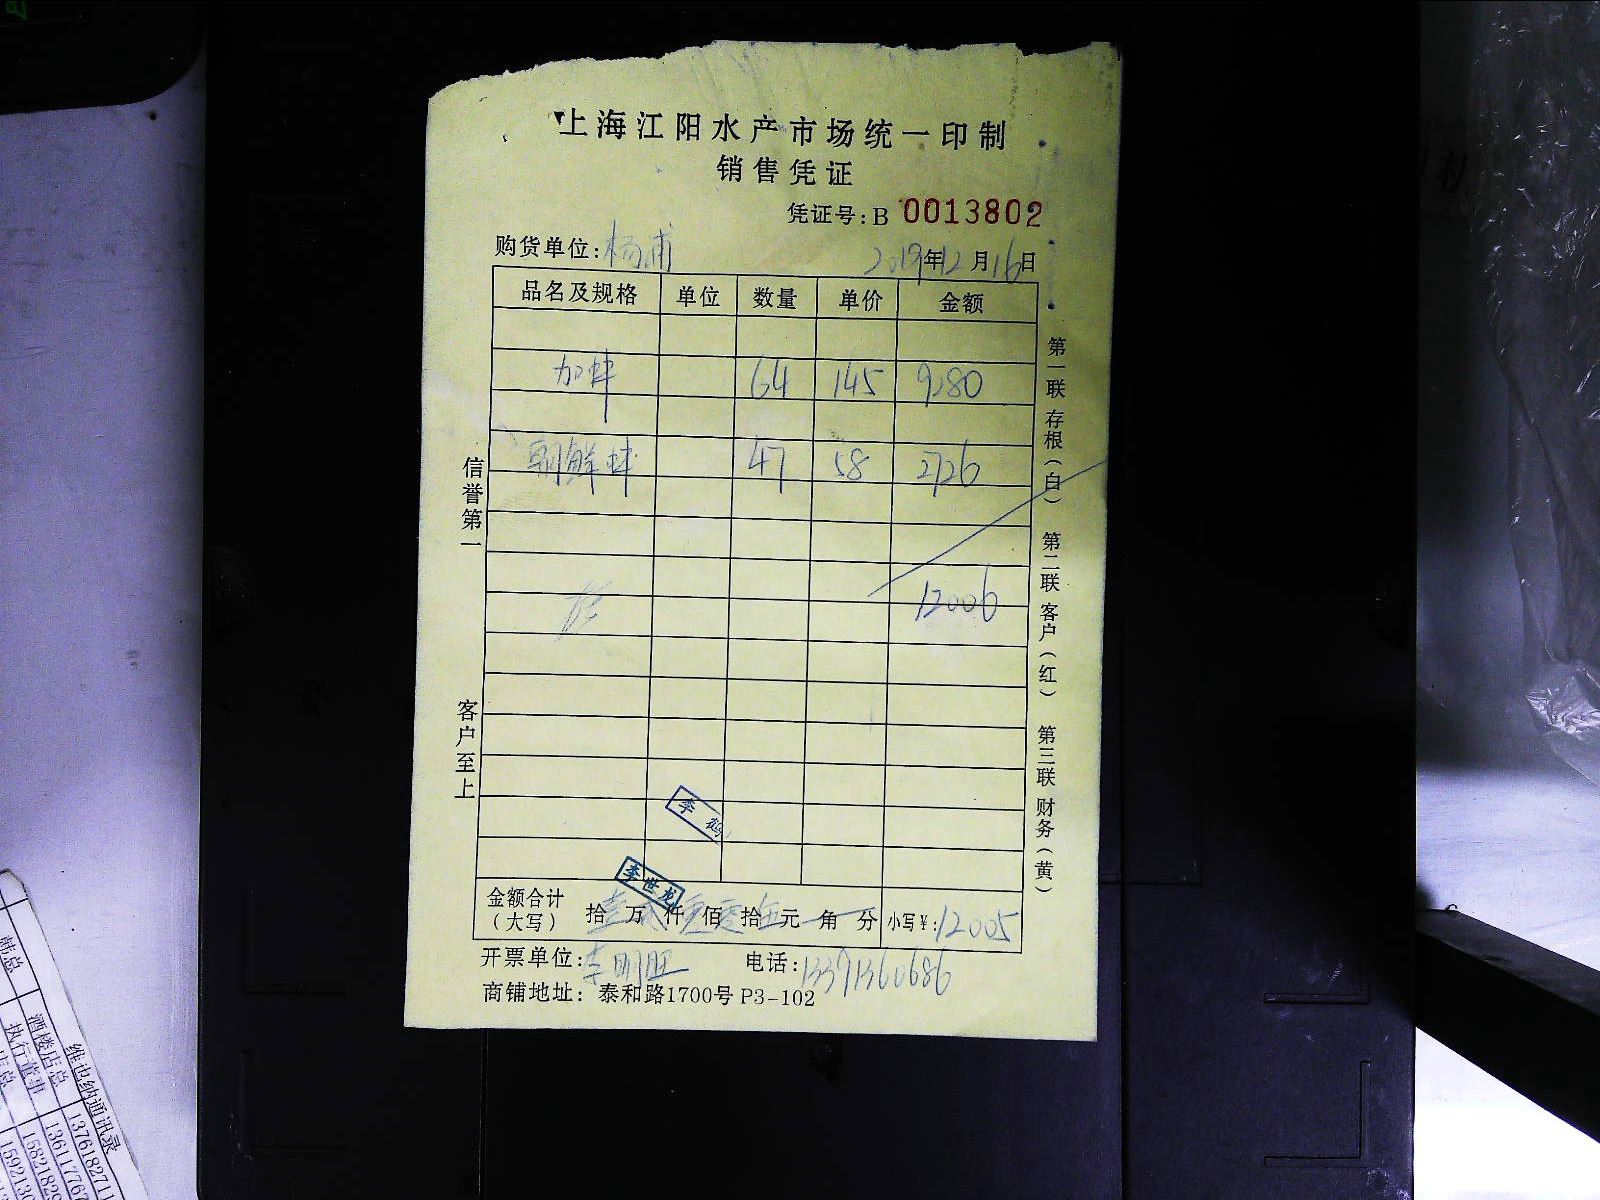 上海江阳水产市场统一印制
销售凭证
凭证号:B 0013802
购货单位:杨浦 2019年12月16日
品名及规格 单位 数量 单价 金额
加蚌 64 145 9280
朝鲜蚌 47 58 2726
12006
信誉第一
客户至上
第一联 存根(白) 第二联 客户(红) 第三联 财务(黄)
李鹤
李世龙
金额合计
(大写) 拾壹万贰仟零佰零拾伍元 角 分 小写¥:12005
开票单位:李明旺 电话:13391360686
商铺地址: 泰和路1700号 P3-102
维也纳通讯录
韩总 酒楼店总 1376182711
执行董事 136117767
店总 15821829
1592130